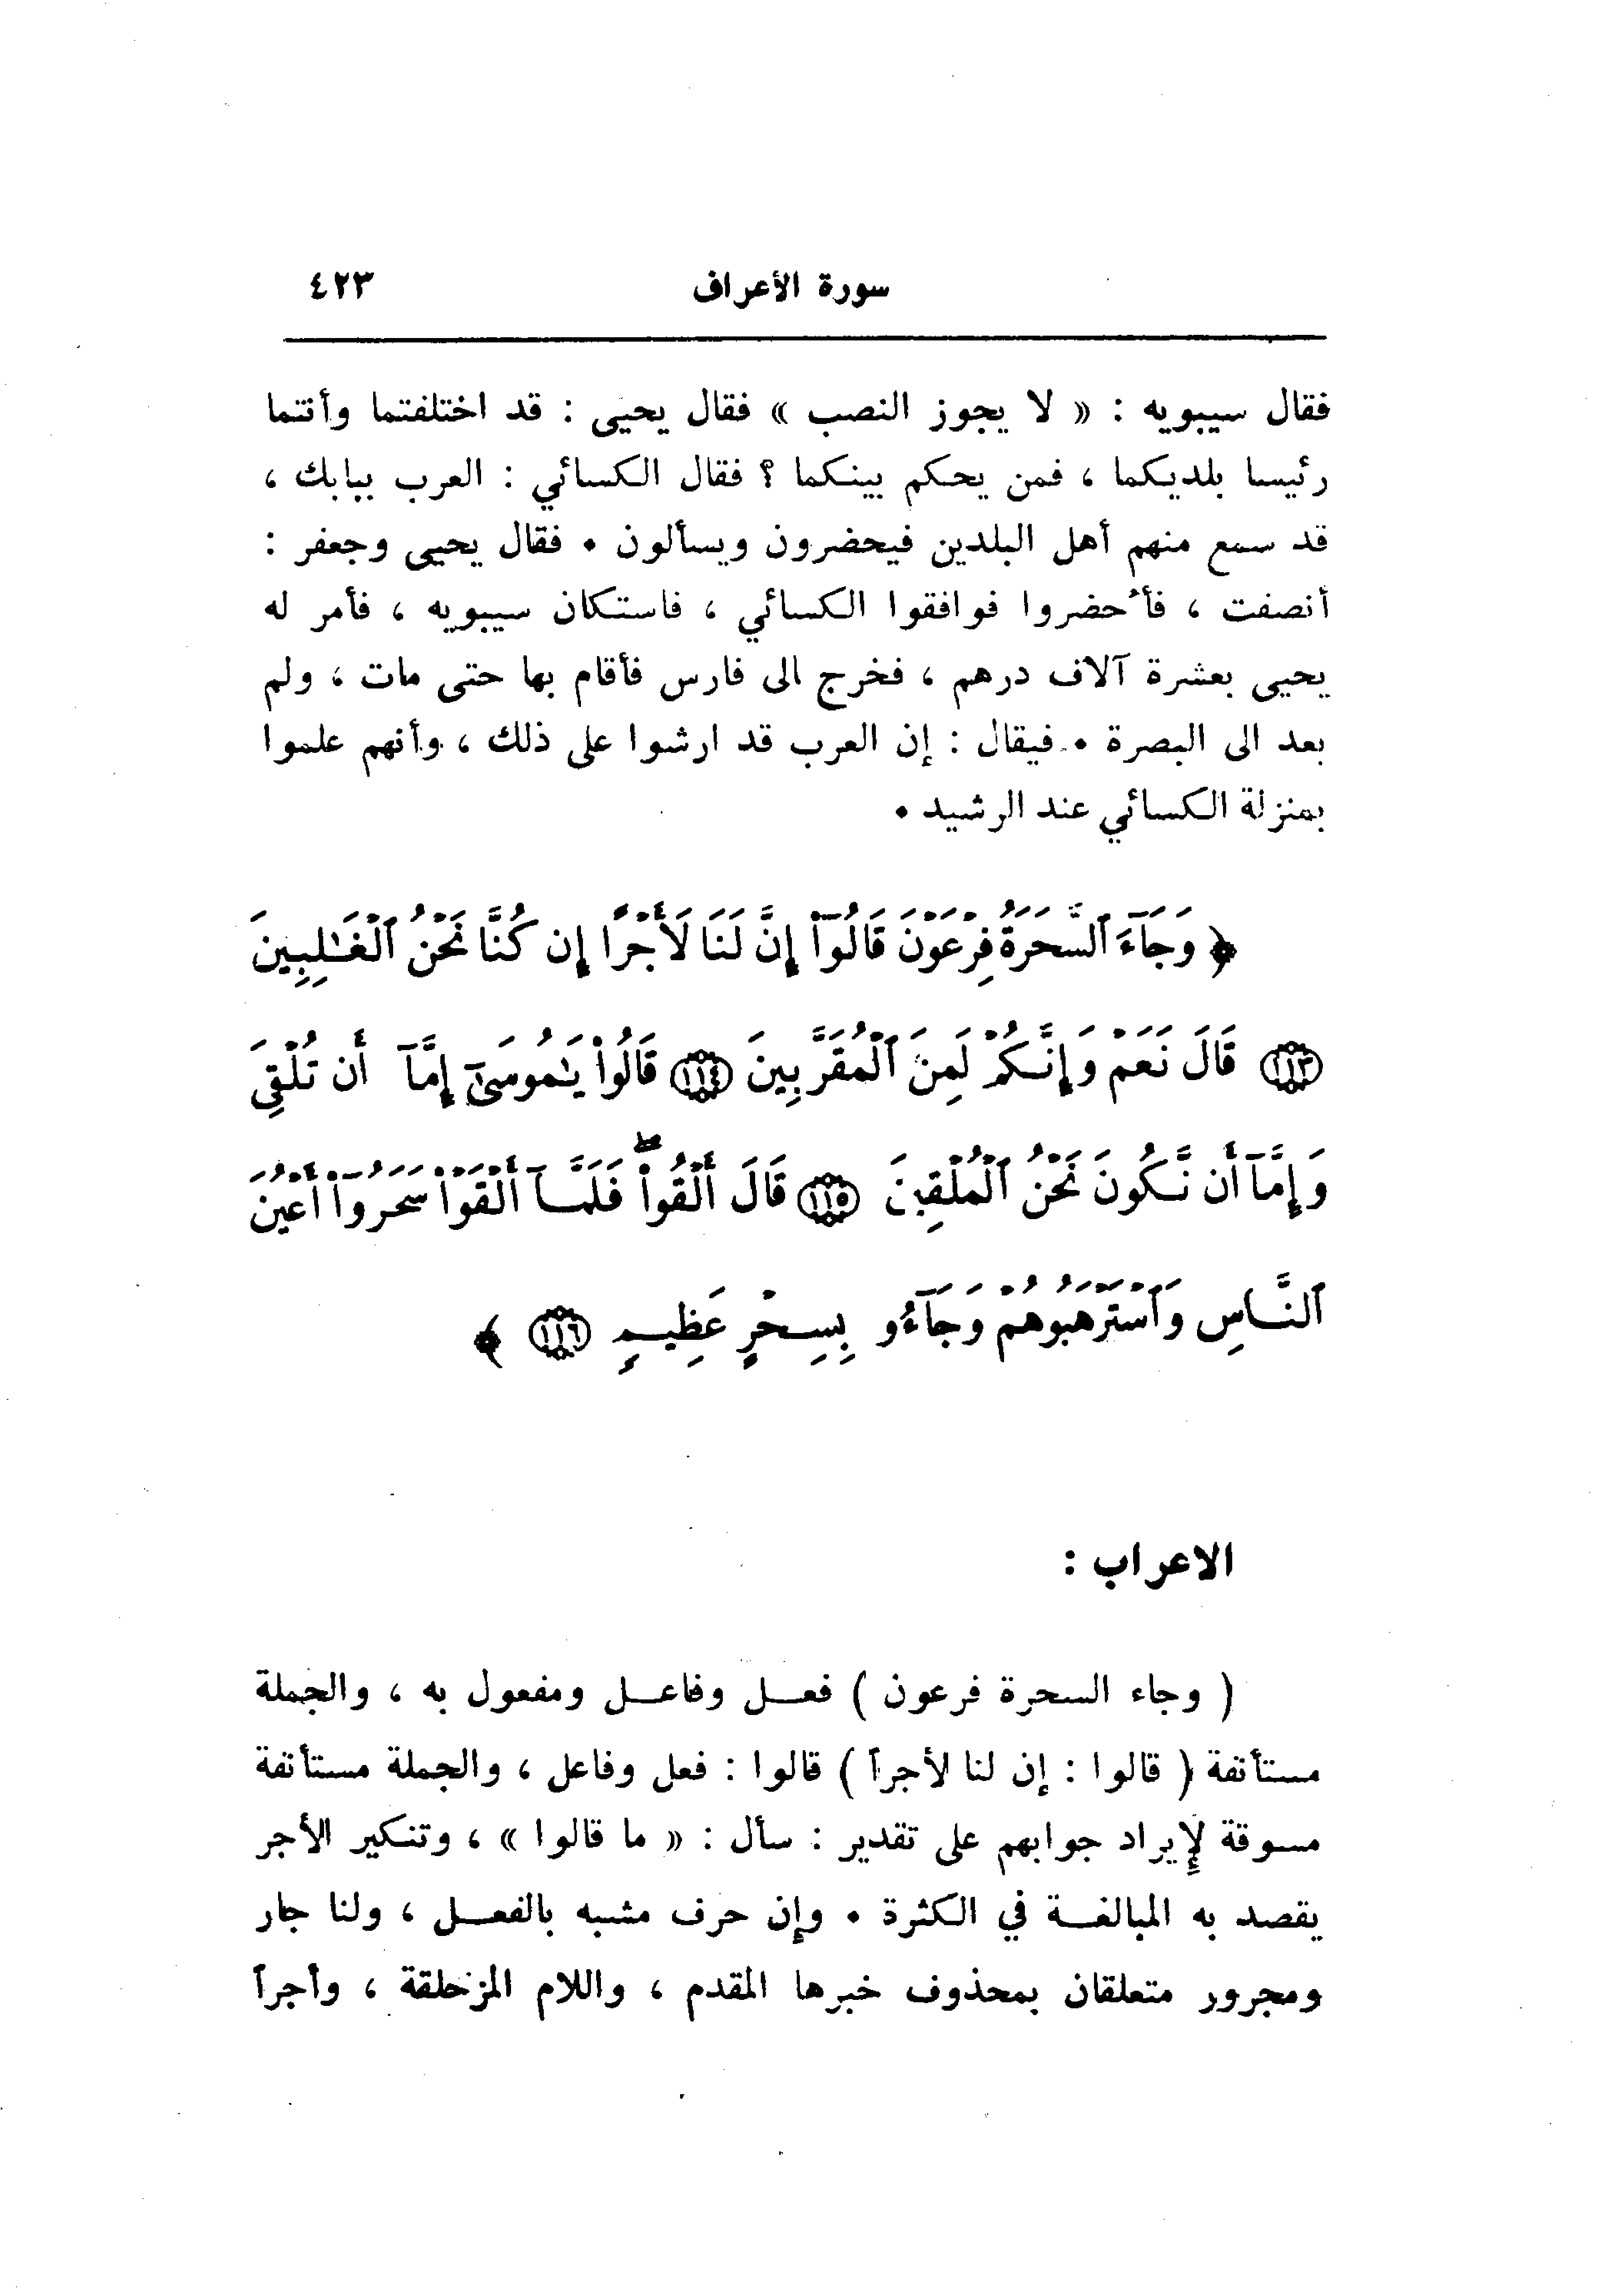 سورة الأعراف ٤٢٣
فقال سيبويه : « لا يجوز النصب » فقال يحيى : قد اختلفتما وأنتما
رئيسا بلديكما ، فمن يحكم بينكما ؟ فقال الكسائي : العرب ببابك ،
قد سمع منهم أهل البلدين فيحضرون ويسألون • فقال يحيى وجعفر :
أنصفت ، فأُحضروا فوافقوا الكسائي ، فاستكان سيبويه ، فأمر له
يحيى بعشرة آلاف درهم ، فخرج الى فارس فأقام بها حتى مات ، ولم
يعد الى البصرة • فيقال : إن العرب قد ارشوا على ذلك ، وأنهم علموا
بمنزلة الكسائي عند الرشيد •
﴿ وَجَآءَ ٱلسَّحَرَةُ فِرْعَوْنَ قَالُوٓا۟ إِنَّ لَنَا لَأَجْرًا إِن كُنَّا نَحْنُ ٱلْغَٰلِبِينَ
﴿١١٣﴾ قَالَ نَعَمْ وَإِنَّكُمْ لَمِنَ ٱلْمُقَرَّبِينَ ﴿١١٤﴾ قَالُوا۟ يَٰمُوسَىٰٓ إِمَّآ أَن تُلْقِىَ
وَإِمَّآ أَن نَّكُونَ نَحْنُ ٱلْمُلْقِينَ ﴿١١٥﴾ قَالَ أَلْقُوا۟ۖ فَلَمَّآ أَلْقَوْا۟ سَحَرُوٓا۟ أَعْيُنَ
ٱلنَّاسِ وَٱسْتَرْهَبُوهُمْ وَجَآءُو بِسِحْرٍ عَظِيمٍ ﴿١١٦﴾ ﴾
الاعراب :
( وجاء السحرة فرعون ) فعل وفاعل ومفعول به ، والجملة
مستأنفة ( قالوا : إن لنا لأجراً ) قالوا : فعل وفاعل ، والجملة مستأنفة
مسوقة لإيراد جوابهم على تقدير : سأل : « ما قالوا » ، وتنكير الأجر
يقصد به المبالغة في الكثرة • وإن حرف مشبه بالفعل ، ولنا جار
ومجرور متعلقان بمحذوف خبرها المقدم ، واللام المزحلقة ، وأجراً